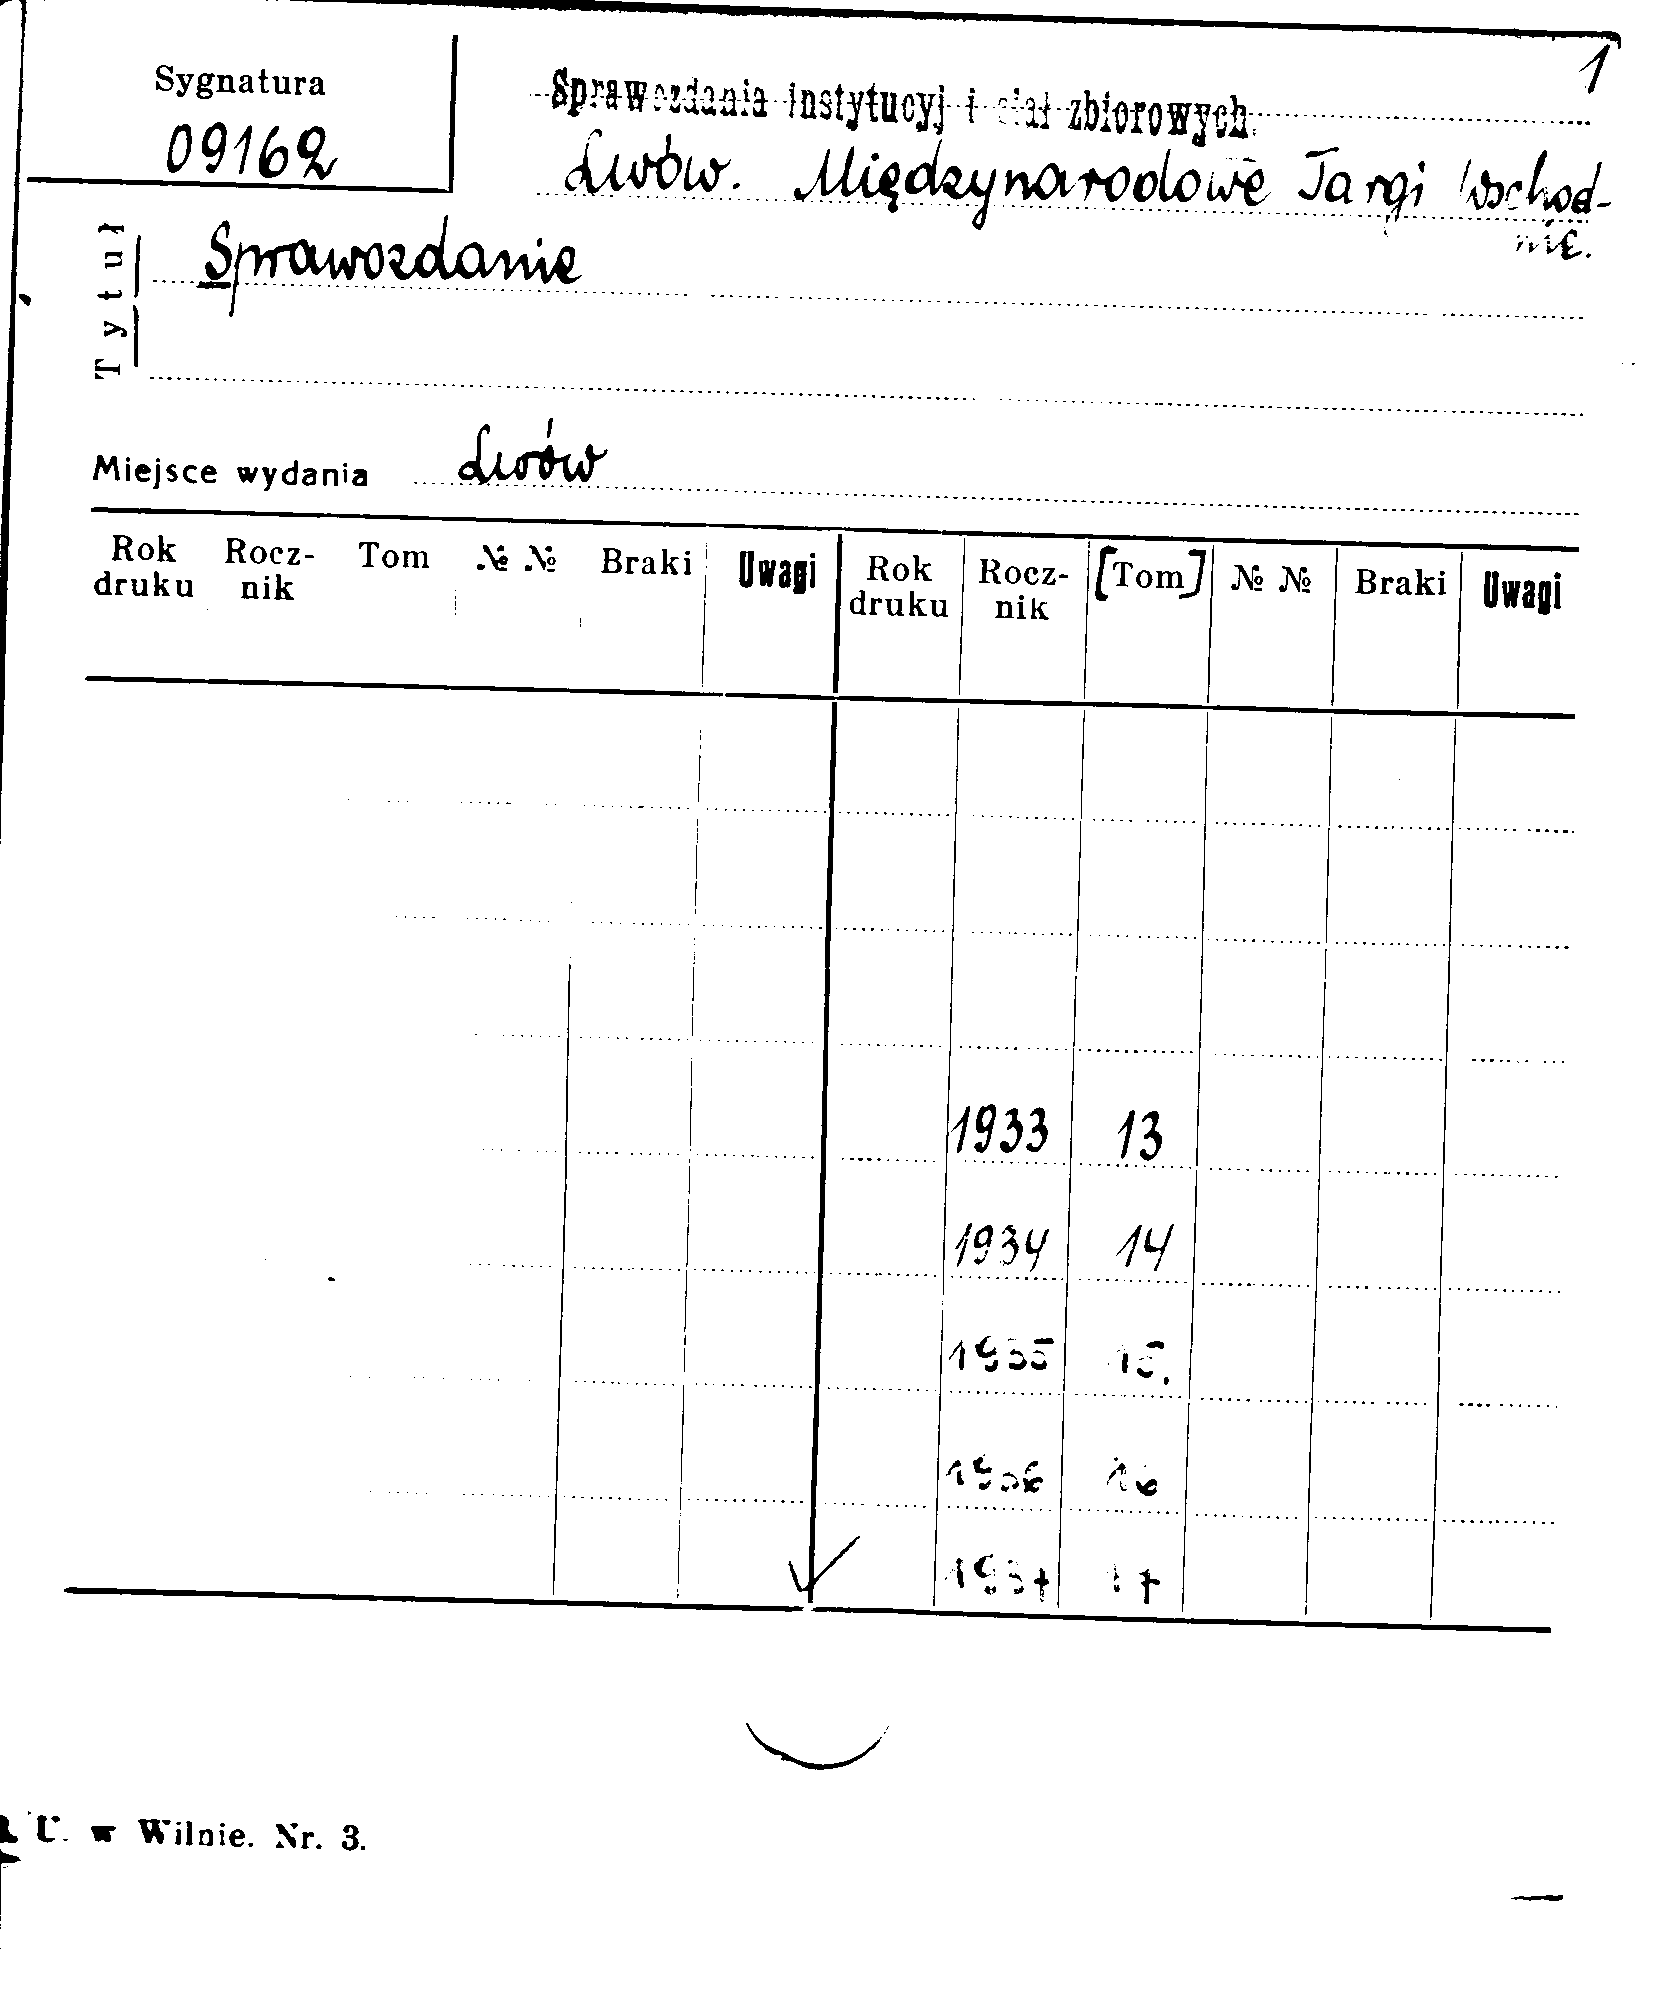 1
Sygnatura
09162
Sprawozdania instytucyj i ciał zbiorowych.
Lwów. Międzynarodowe Targi Wschod-
nie.
Tytuł
Sprawozdanie
Miejsce wydania Lwów
Rok druku Rocz-nik Tom № № Braki Uwagi Rok druku Rocz-nik [Tom] № № Braki Uwagi
1933 13
1934 14
1935 15.
1936 16
1937 17
U. w Wilnie. Nr. 3.